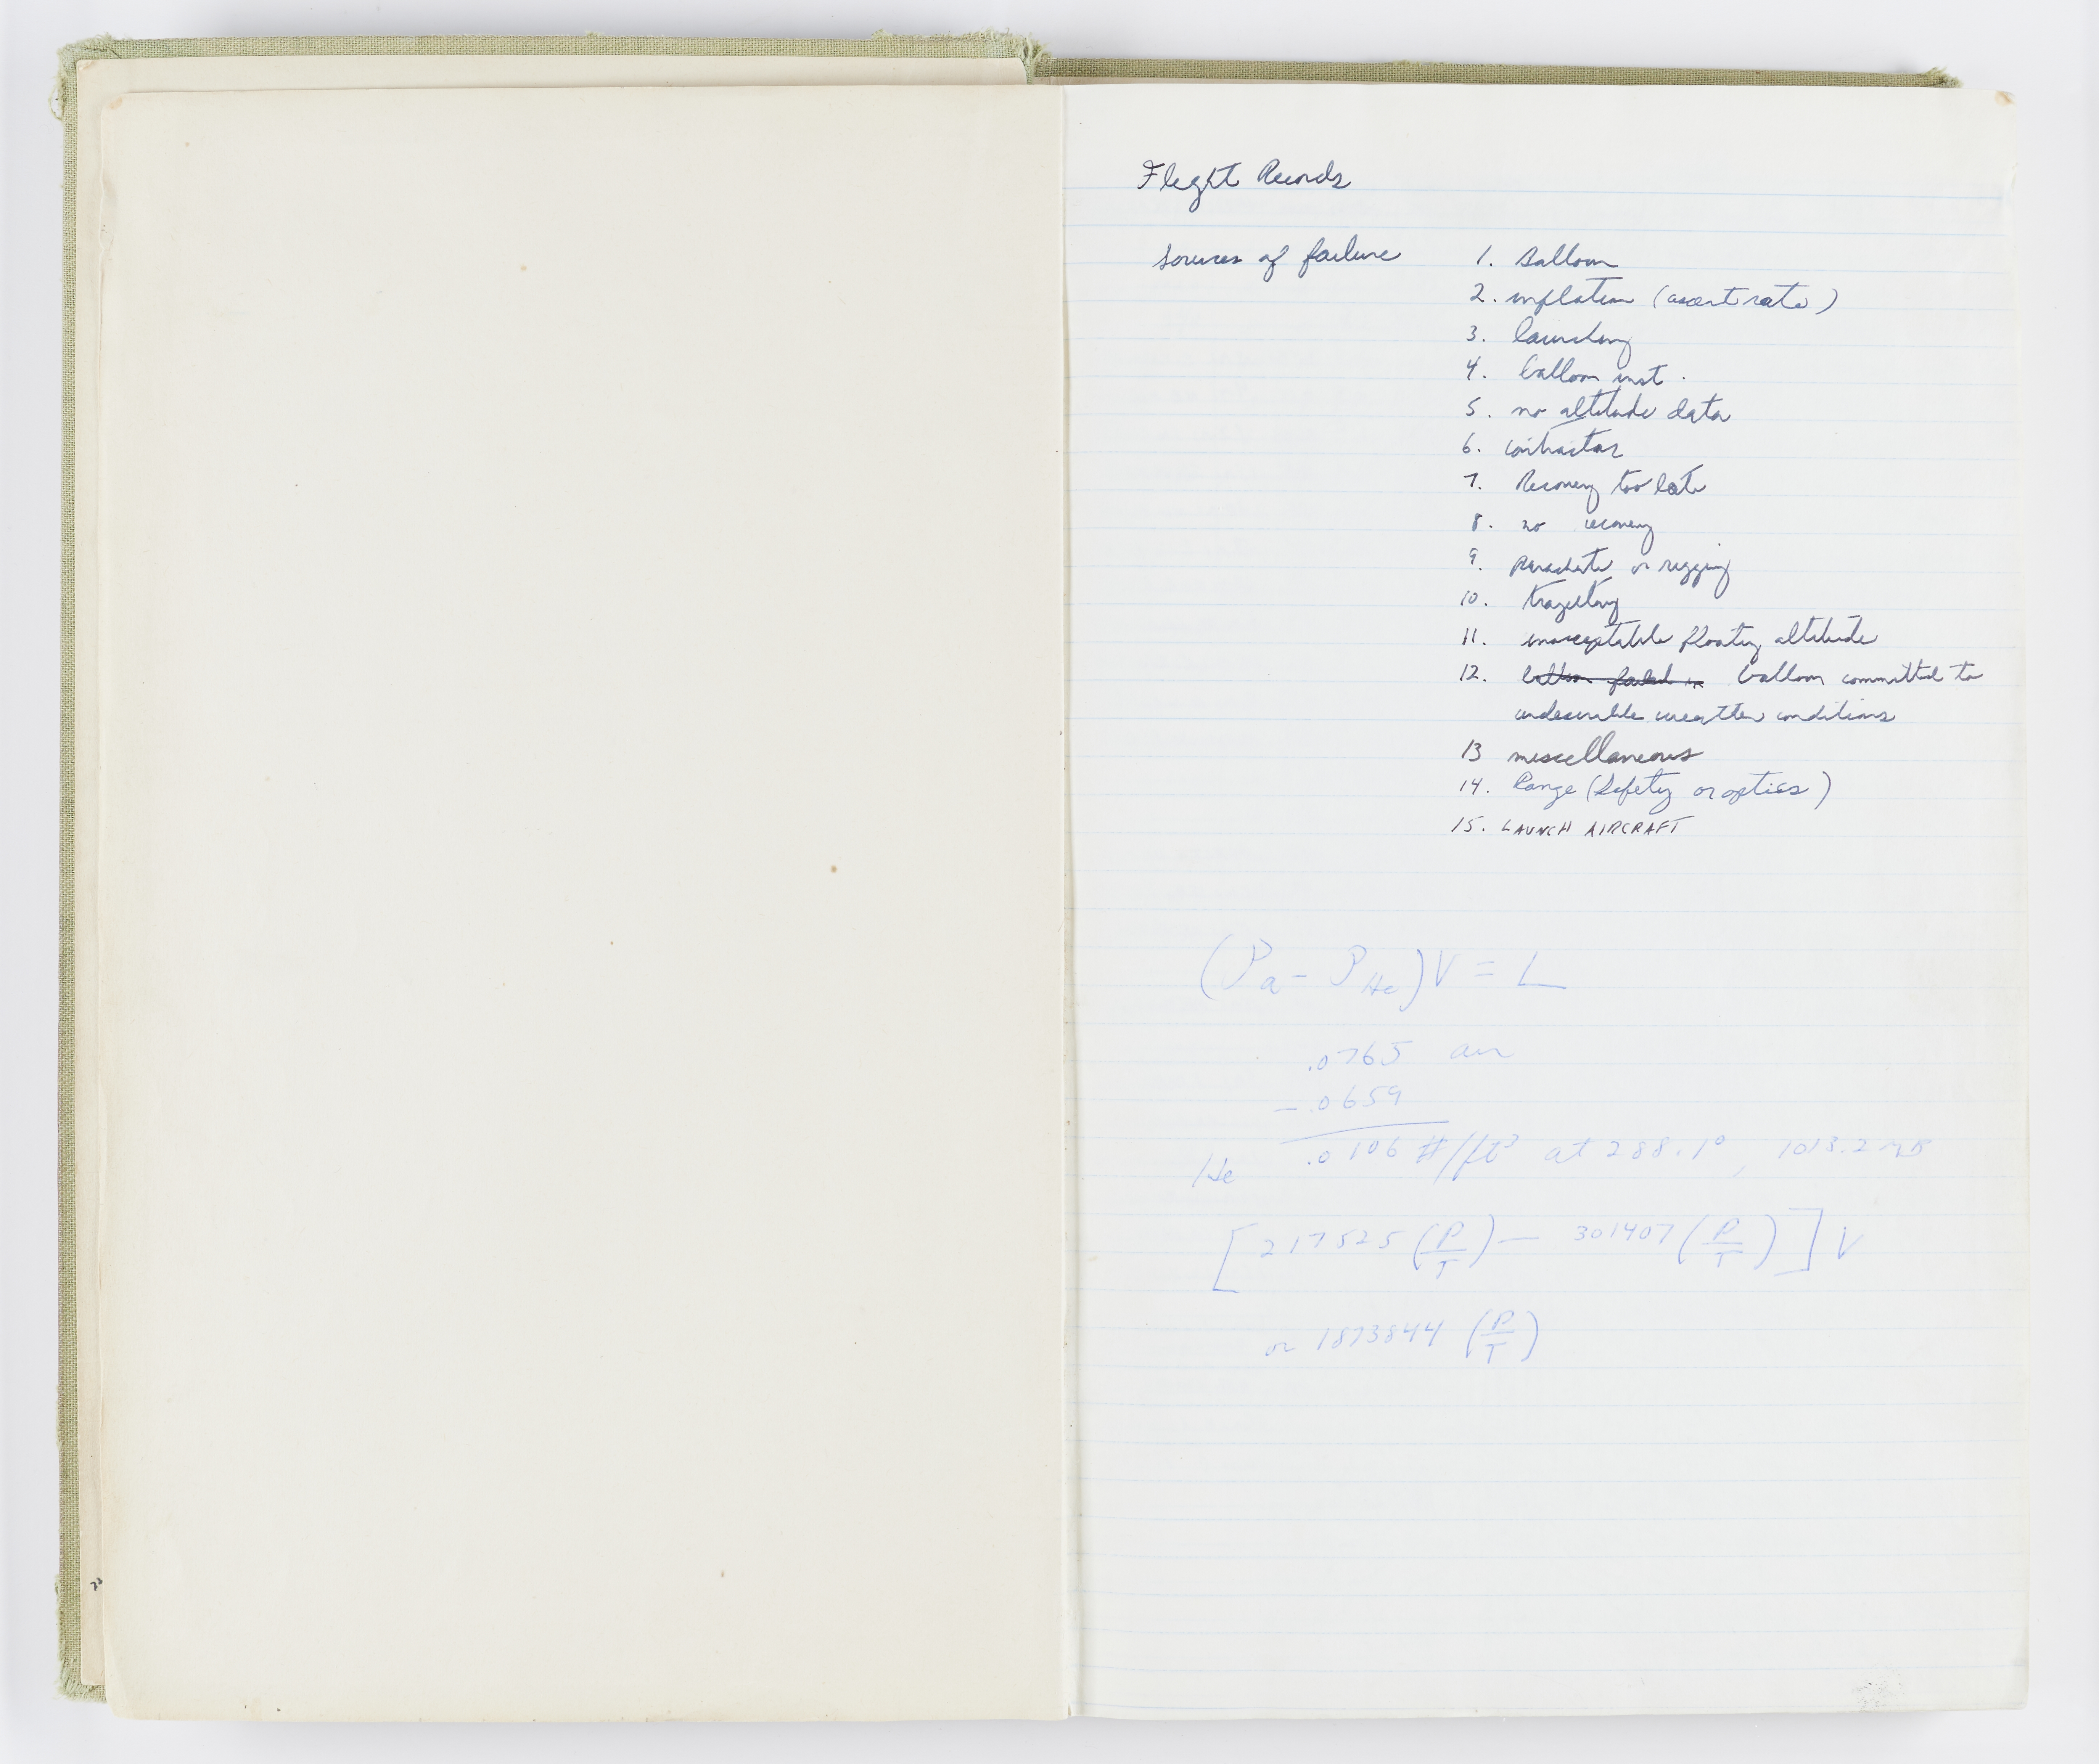 Flight Records
Sources of failure
1. Balloon
2. inflation (ascent rate)
3. launching
4. balloon inst.
5. no altitude data
6. contractor
7. Recovery too late
8. no recovery
9. parachute or rigging
10. trajectory
11. unacceptable floating altitude
12. balloon failed in balloon committed to
undesirable weather conditions
13 miscellaneous
14. Range (Safety or optics)
15. LAUNCH AIRCRAFT
(ρa - ρHe) V = L
.0765 air
- .0659
He .0106 #/ft³ at 288.1°, 1013.2 mb
[217525 (P/T) — 301407 (P/T)] V
or 1873844 (P/T)